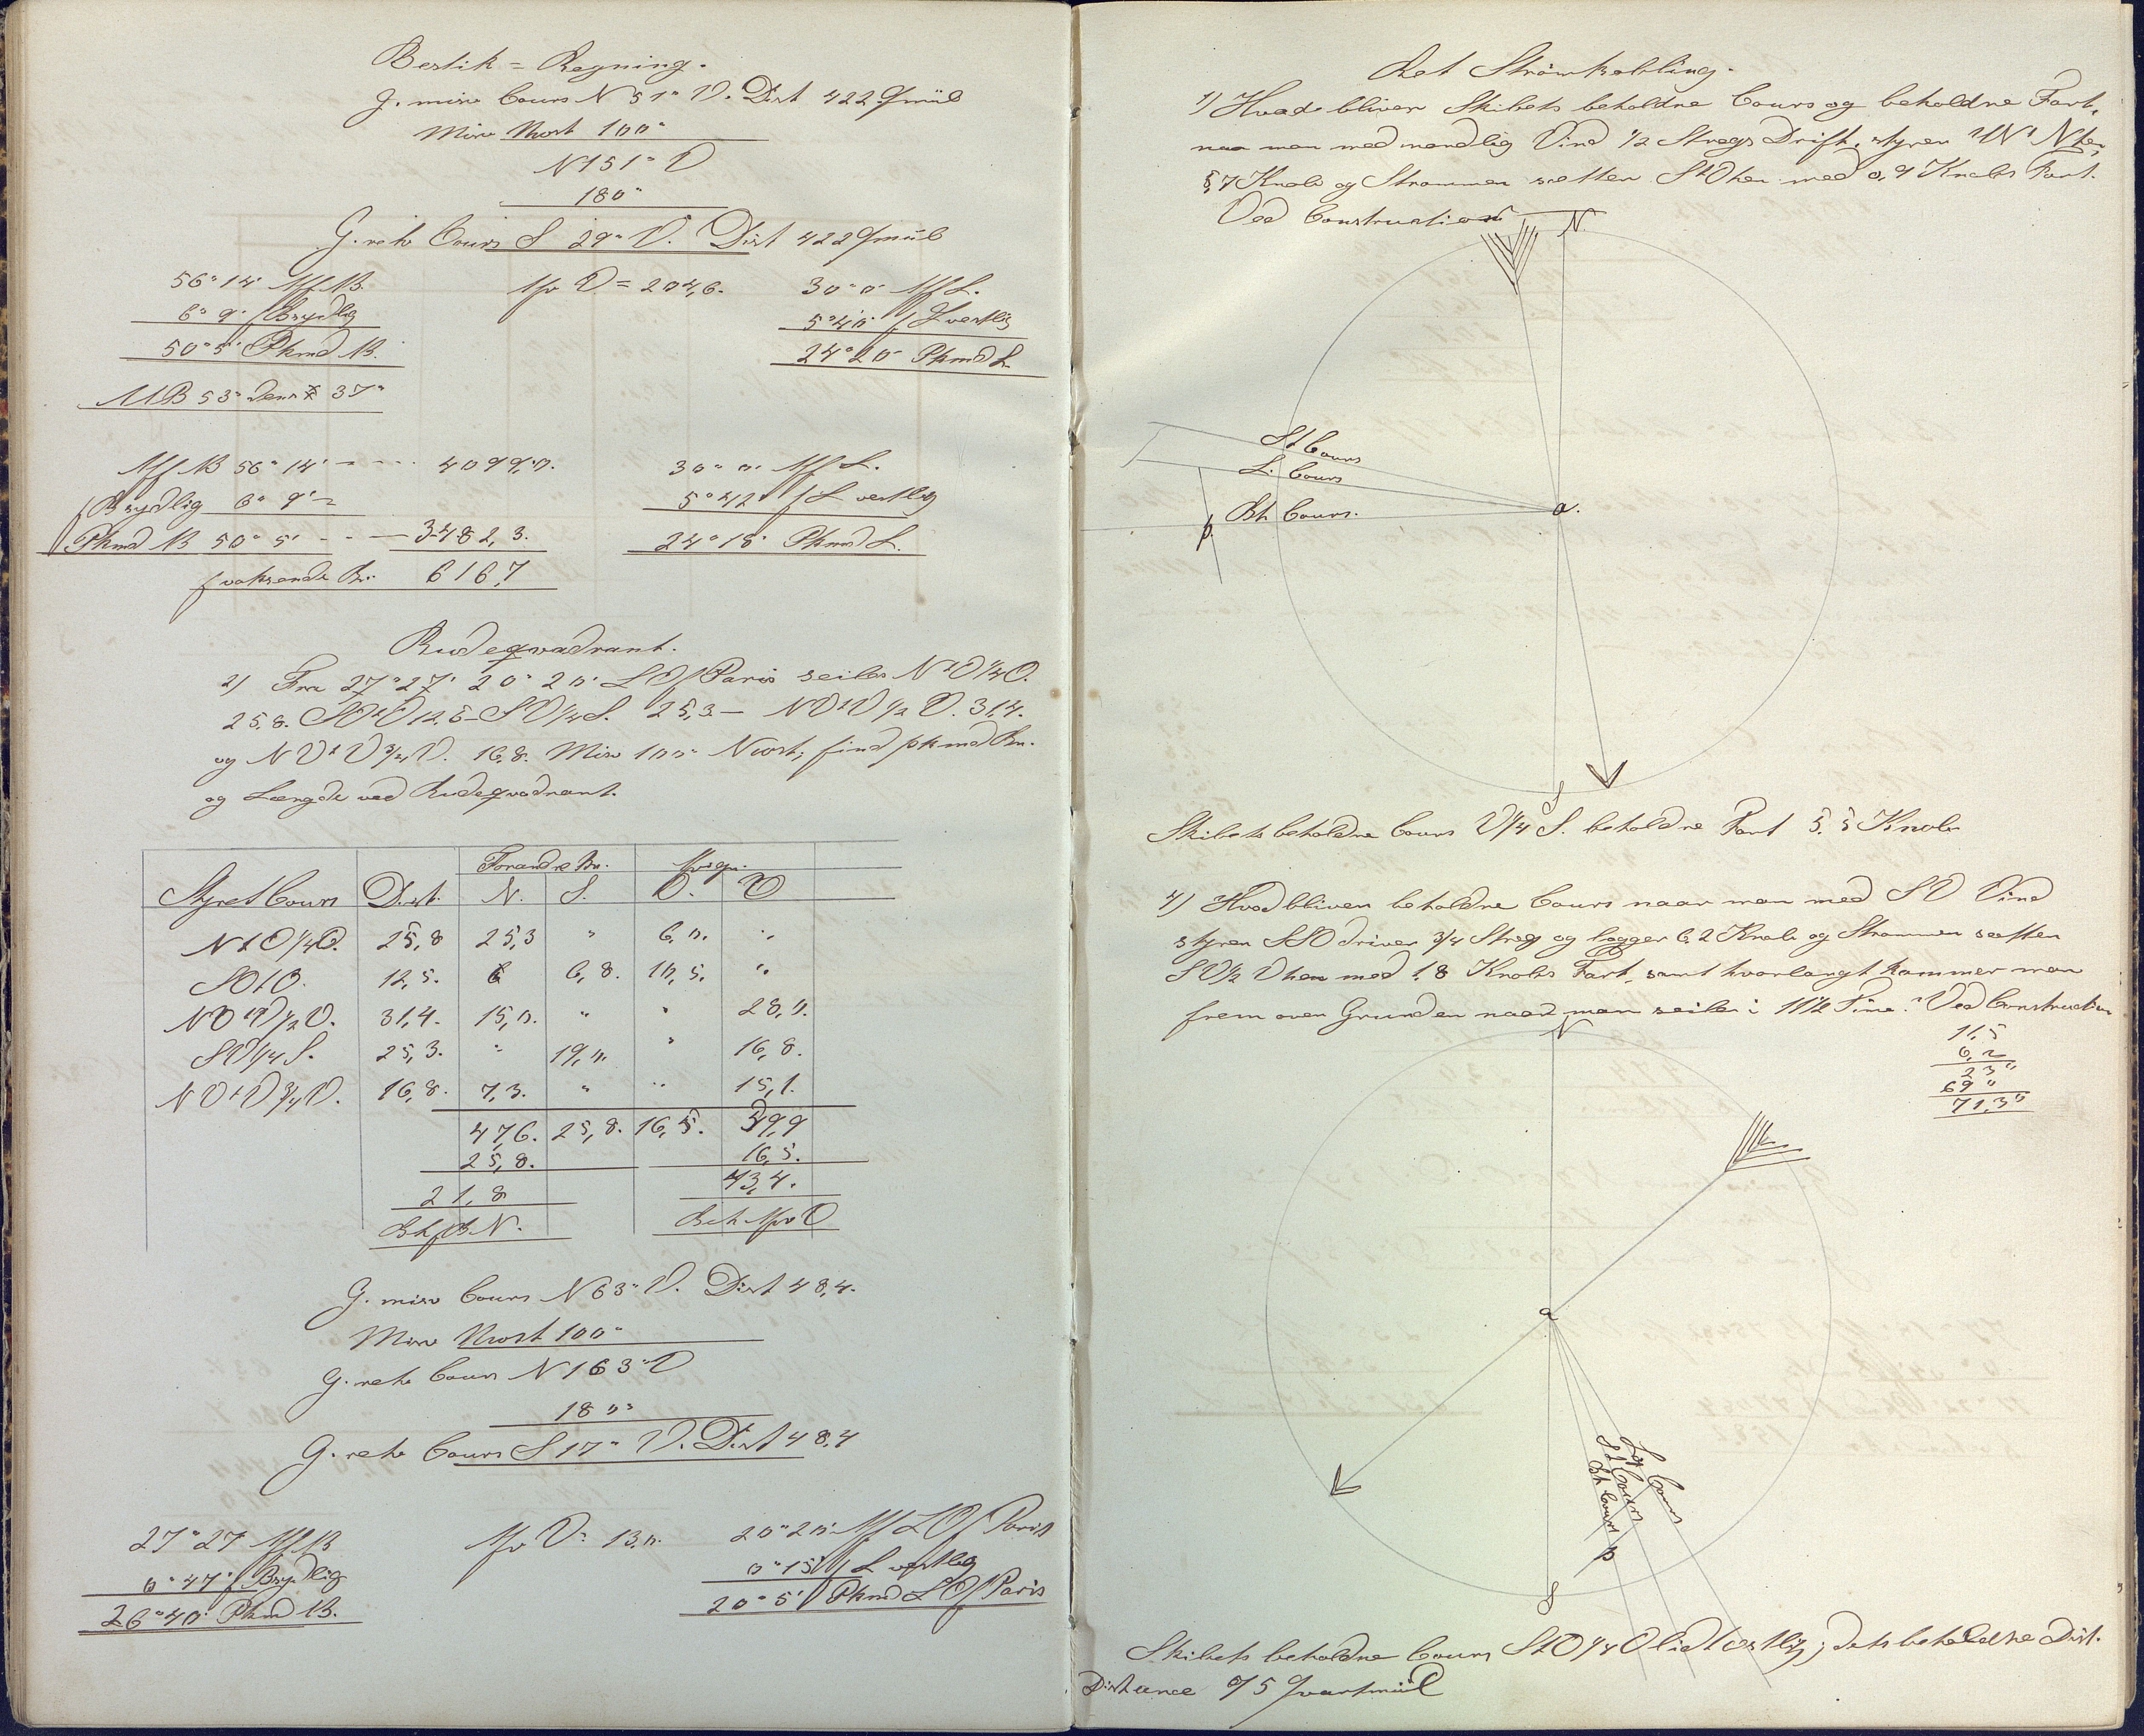 Bestik = Regning.
G. misv Cours N 51° V. Dist 422 Qmiil
Misv Nvost 100°
N 151° V
180°
G. retv Cours S 29° V. Dist 422 Qmiil
56° 14' Aff B.
6° 9' f B sydlig
50° 5' Pkmd B.
Afv V = 204,6.
30° 0' Aff L.
5° 40' f L vestlig
24° 20' Pkmd L.
MB 53° dens 37°
Aff B 56° 14' - - - - 4099,0.
f B sydlig 6° 9'
Pkmd B 50° 5' - - - 3482,3.
f voksende Br. 616,7
30° 0' Aff L.
5° 42' f L vestlig
24° 18' Pkmd L.
Rudeqvadrant.
2) Fra 27° 27' 20° 20' L O f Paris seiles NtO 1/4 O.
25,8. SOtO 12,5 - SV 1/4 S. 25,3 - NVtV 1/2 V. 31,4.
og NVtV 3/4 V. 16,8. Misv 100° Nvost, find pkmd Br.
og Længde ved Rudeqvadrant.
Forandr Br. Afvign.
Styret Cours Dist. N. S. O. V
NtO 1/4 O. 25,8 25,3 " 6,0. "
SOtO. 12,5. 6,8. 10,5. "
NVtV 1/2 V. 31,4. 15,0. " " 28,0.
SV 1/4 S. 25,3. " 19,0. " 16,8.
NVtV 3/4 V. 16,8. 7,3. " " 15,1.
47,6. 25,8. 16,5. 59,9
25,8. 16,5.
21,8 43,4.
Bh f B N. Beh Afv V
G. misv Cours N 63° V. Dist 48,4.
Misv Nvost 100°
G. retv Cours N 163° V
180°
G. retv Cours S 17° V. Dist 48,4
27° 27' Aff B
0° 47' f B sydlig
26° 40' Pkmd B.
Afv V = 13,0.
20° 20' Aff L O f Paris
0° 15' f L vestlig
20° 5' Pkmd L O f Paris
Ret Strømkobling.
1) Hvad bliver Skibets beholdne Cours og beholdne Fart,
naar man med nordlig Vind 1/2 Stregs Drift, styrer
5,7 Knob og Strømmen sætter StO hen med 0,9 Knobs Fart.
Ved Construction
N.
St Cours
L. Cours
Bh Cours.
a.
p.
S
Skibets beholdne Cours V 1/4 S. beholdne Fart 5,5 Knob
4) Hvad bliver beholdne Cours naar man med SV Vind
styrer SSO driver 3/4 Streg og logger 6,2 Knob og Strømmen sætter
SV 1/2 V hen med 1,8 Knobs Fart, samt hvorlangt kommer man
frem over Grunden naar man seiler i 11 1/2 Time. Ved Construction
11,5
6,2
23"
69"
71,3"
N
a
Lg Cours
St Cours
Bh Cours
p
S
Skibets beholdne Cours StO 1/4 O lidt østlig, dets beholdne Dist.
Distance 75 Qvartmiil